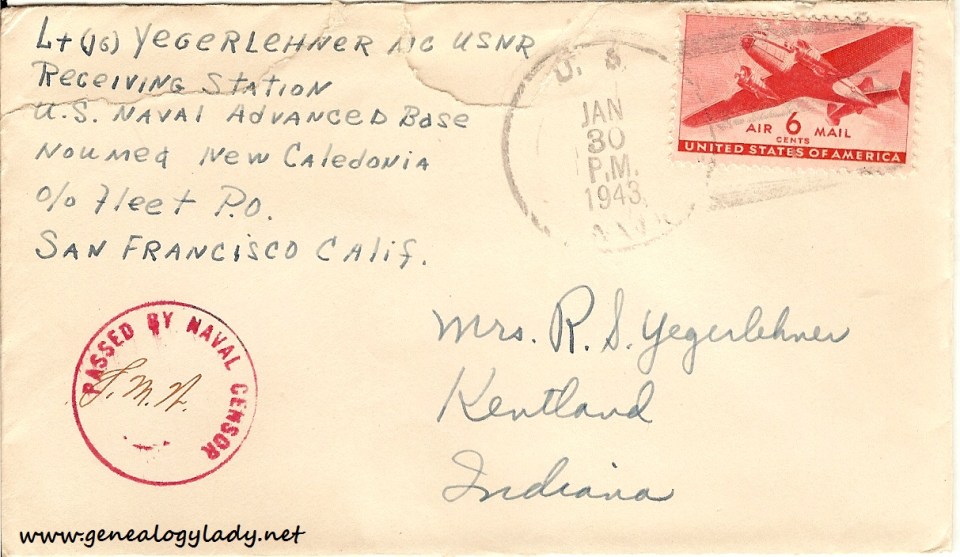 Lt (jg) Yegerlehner A/C USNR
Receiving Station
U.S. Naval Advanced Base
Noumea New Caledonia
c/o Fleet P.O.
San Francisco Calif.
U. S.
JAN
30
P.M.
1943
NAVY
AIR 6 MAIL
CENTS
UNITED STATES OF AMERICA
PASSED BY NAVAL CENSOR
Mrs. R. S. Yegerlehner
Kentland
Indiana
www.genealogylady.net